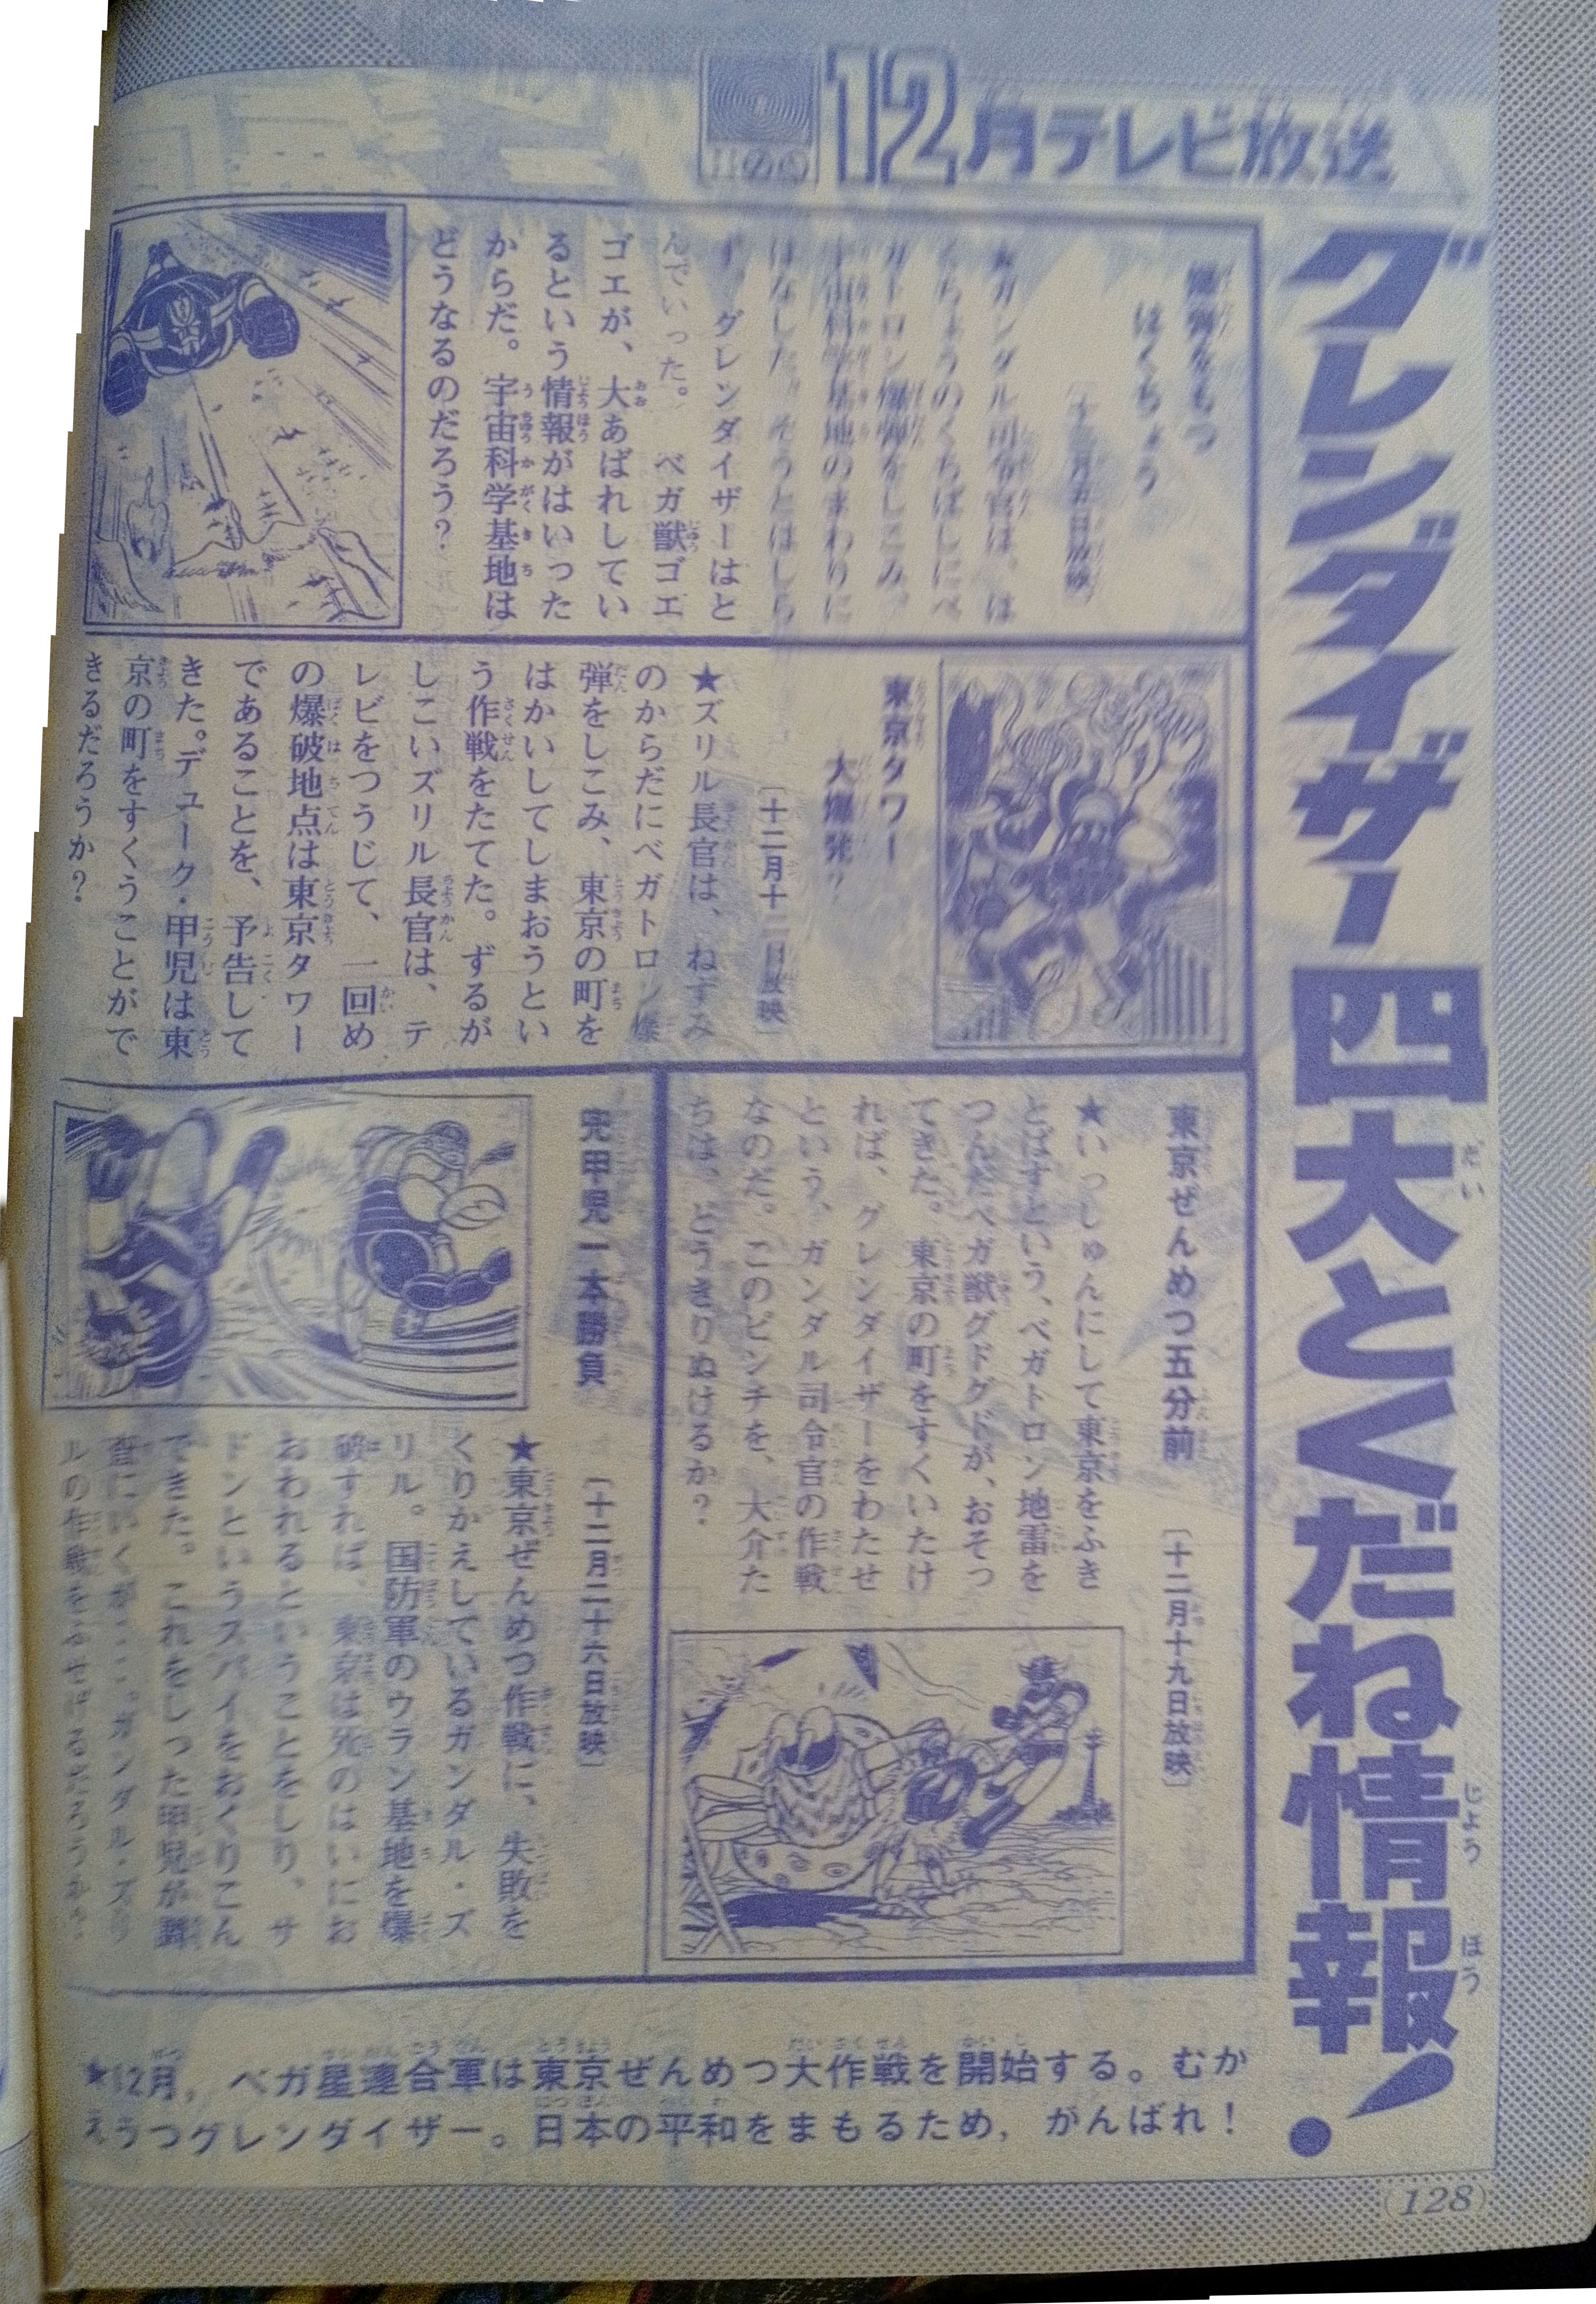 12月テレビ放送
グレンダイザー四大とくだね情報!
爆弾をもつ
はくちょう
〔十二月五日放映〕
★ガンダル司令官は、は
くちょうのくちばしにベ
ガトロン爆弾をしこみ、
宇宙科学基地のまわりに
はなした。そうとはしら
ず、グレンダイザーはと
んでいった。ベガ獣ゴエ
ゴエが、大あばれしてい
るという情報がはいった
からだ。宇宙科学基地は
どうなるのだろう?
東京タワー
大爆発?
〔十二月十二日放映〕
★ズリル長官は、ねずみ
のからだにベガトロン爆
弾をしこみ、東京の町を
はかいしてしまおうとい
う作戦をたてた。ずるが
しこいズリル長官は、テ
レビをつうじて、一回め
の爆破地点は東京タワー
であることを、予告して
きた。デューク・甲児は東
京の町をすくうことがで
きるだろうか?
東京ぜんめつ五分前
〔十二月十九日放映〕
★いっしゅんにして東京をふき
とばすという、ベガトロン地雷を
つんだベガ獣グドグドが、おそっ
てきた。東京の町をすくいたけ
れば、グレンダイザーをわたせ
という、ガンダル司令官の作戦
なのだ。このピンチを、大介た
ちは、どうきりぬけるか?
兜甲児一本勝負
〔十二月二十六日放映〕
★東京ぜんめつ作戦に、失敗を
くりかえしているガンダル・ズ
リル。国防軍のウラン基地を爆
破すれば、東京は死のはいにお
おわれるということをしり、サ
ドンというスパイをおくりこん
できた。これをしった甲児が調
査にいくが……。ガンダル・ズリ
ルの作戦をふせげるだろうか?
★12月，ベガ星連合軍は東京ぜんめつ大作戦を開始する。むか
えうつグレンダイザー。日本の平和をまもるため，がんばれ！
(128)